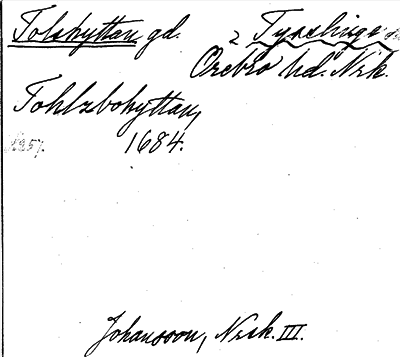 Tolshyttan gd. 2 Tysslinge
Örebro hd. Nrk.
Tohlzbohyttan,
1684.
1957.
Johansson, Nrk. III.